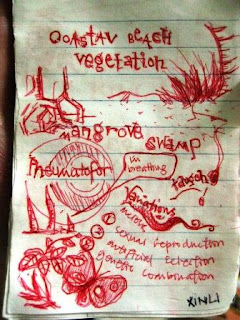 QOASTAV BEACH
vegetation
mangrove swamp
Pneumatofor
im
breathing
Variations
meiosis
① sexual reproduction
② artificial selection
genetic combination
XINLI